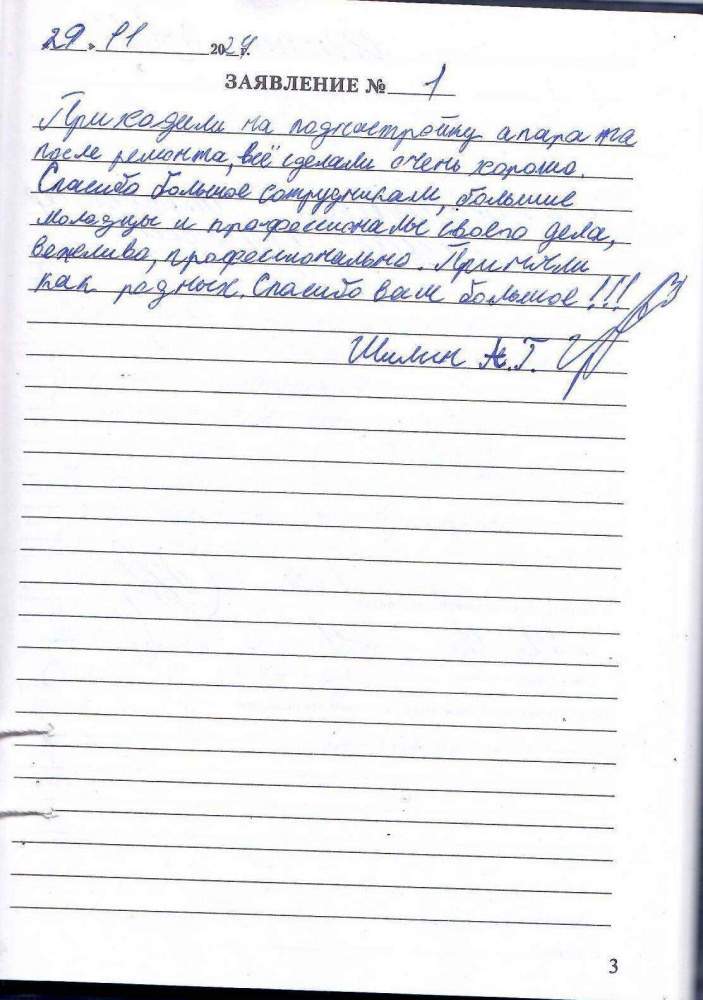 « 29 » 11 2024 г.
ЗАЯВЛЕНИЕ № 1
Приходили на поднастройку апарата
после ремонта, всё сделали очень хорошо.
Спасибо большое сотрудникам, большие
молодцы и профессионалы своего дела,
вежливо, профессионально. Приняли
как родных. Спасибо вам большое!!!
Шилин А.Г.
3